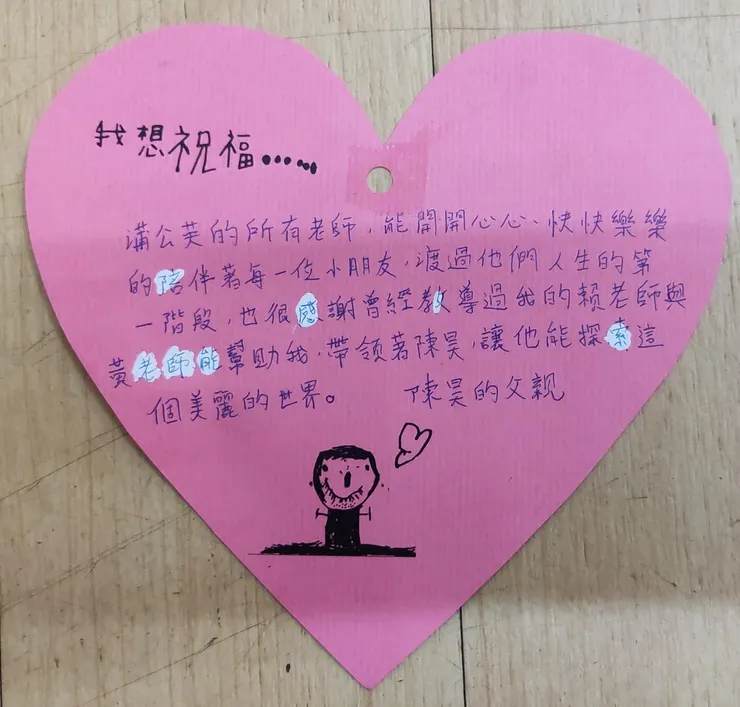 我想祝福......
蒲公英的所有老師，能開開心心、快快樂樂
的陪伴著每一位小朋友，渡過他們人生的第
一階段，也很感謝曾經教導過我的賴老師與
黃老師能幫助我，帶領著陳昊，讓他能探索這
個美麗的世界。 陳昊的父親